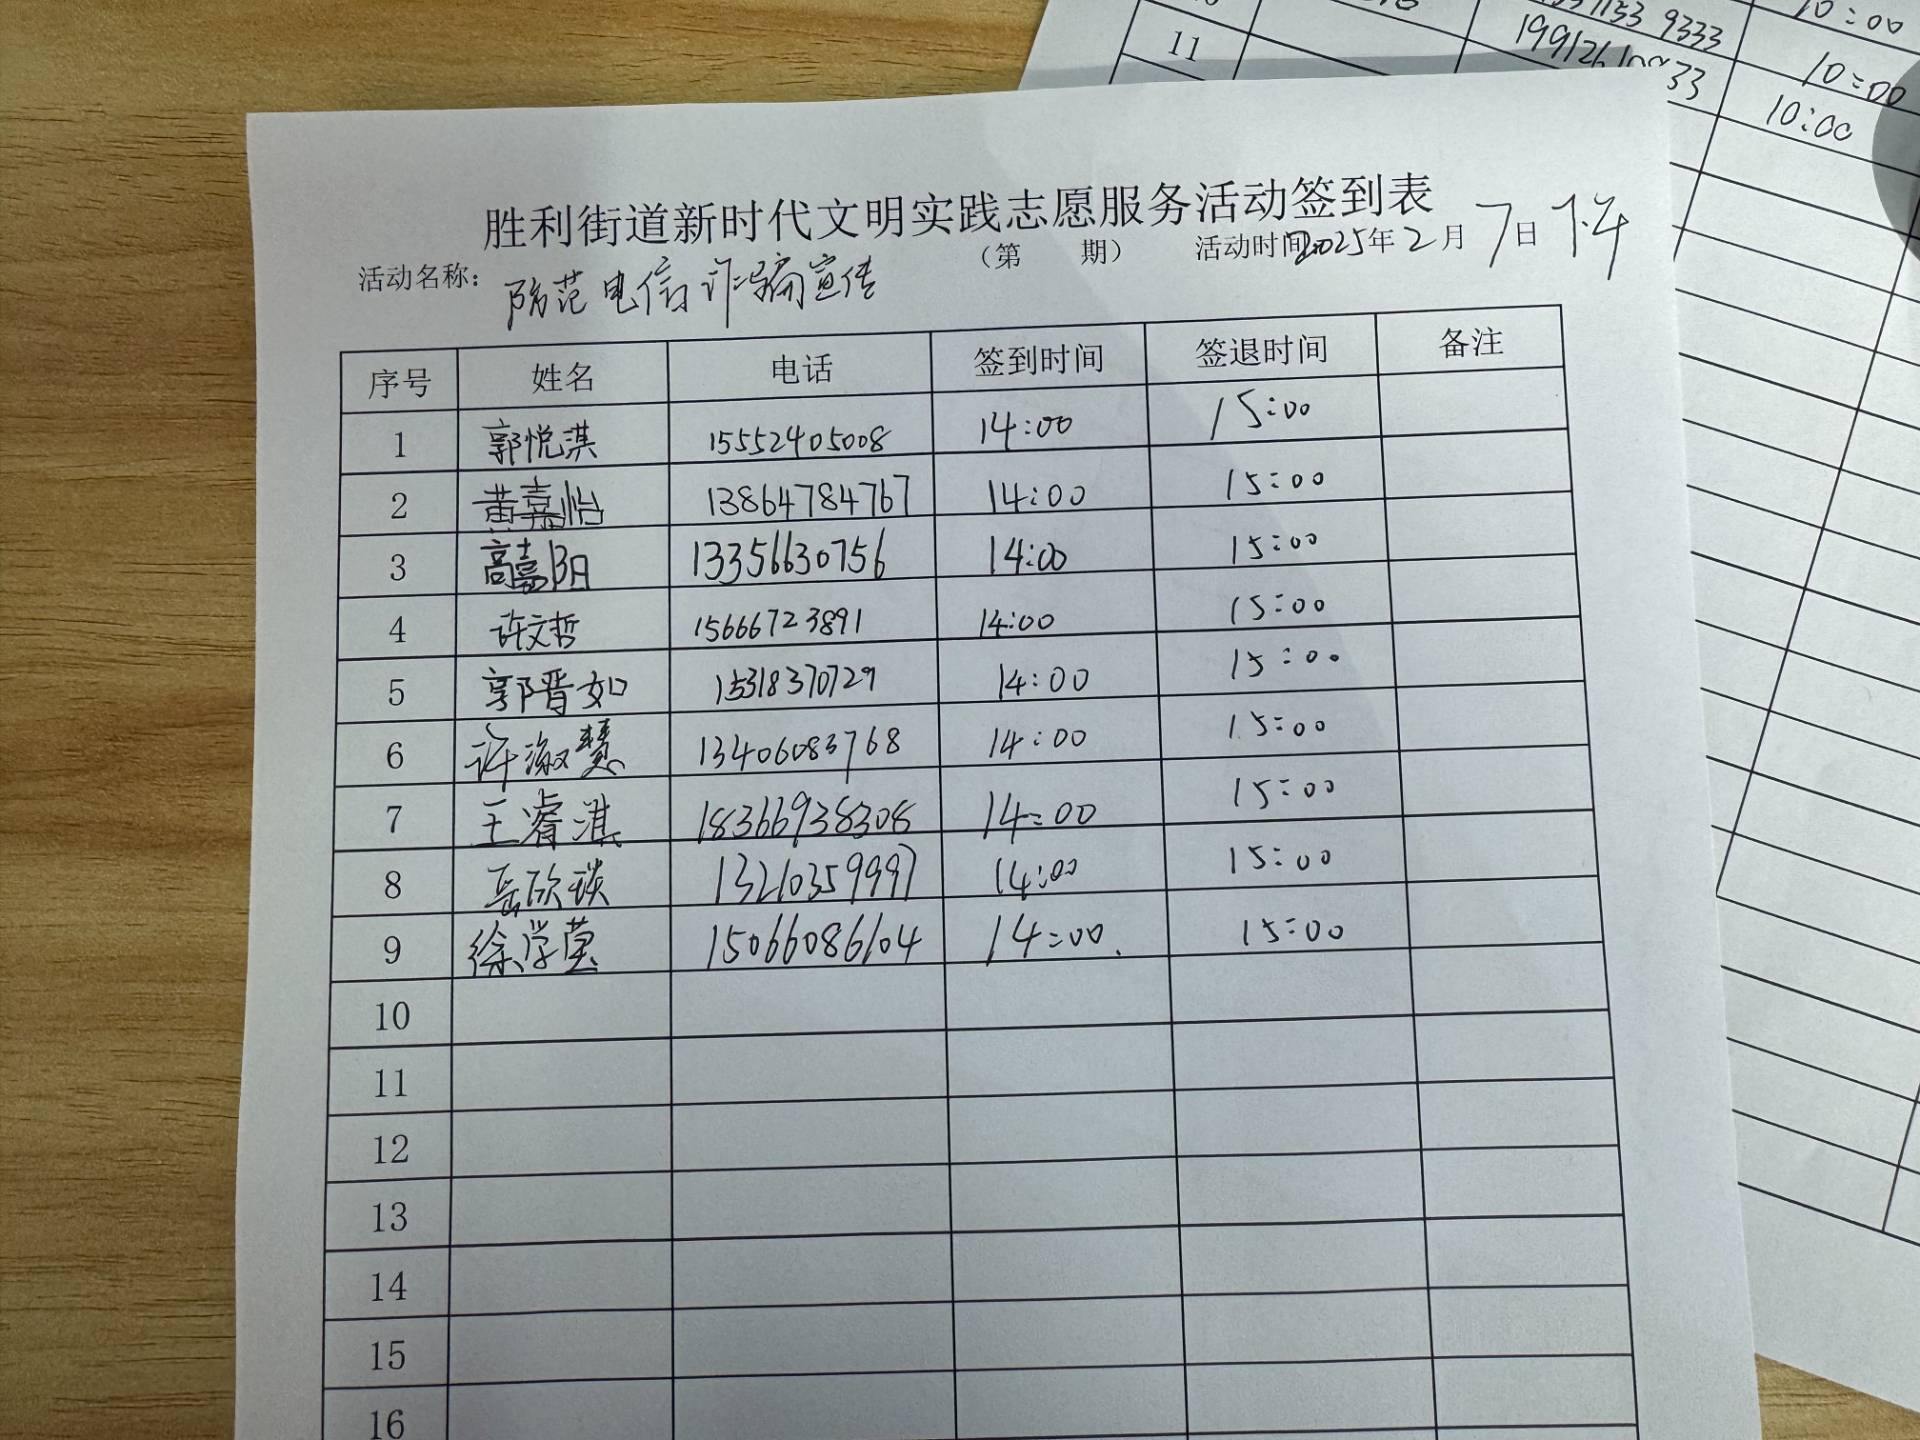 11
9333
10:00
10:00
10:00
胜利街道新时代文明实践志愿服务活动签到表
（第 期） 活动时间 2025年2月7日 下午
活动名称： 防范电信诈骗宣传
序号 姓名 电话 签到时间 签退时间 备注
1 郭悦淇 15552405008 14:00 15:00
2 黄嘉怡 13864784767 14:00 15:00
3 高嘉阳 13356630756 14:00 15:00
4 许文哲 15666723891 14:00 15:00
5 郭晋如 15318370729 14:00 15:00
6 许淑慧 13406083768 14:00 15:00
7 王睿淇 18366938308 14:00 15:00
8 岳欣琰 13210359997 14:00 15:00
9 徐学莹 15066086104 14:00 15:00
10
11
12
13
14
15
16